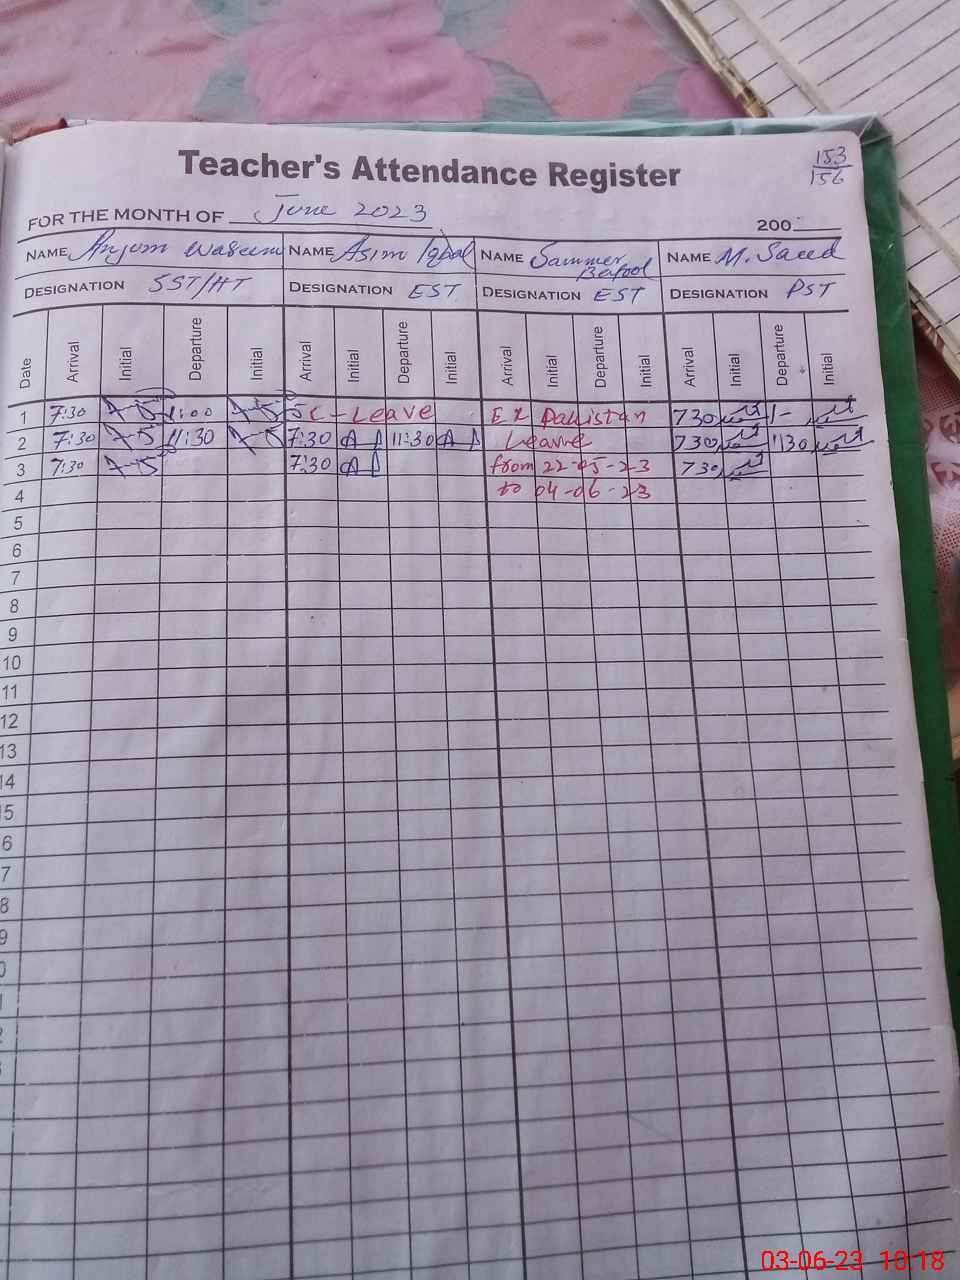 153
156
Teacher's Attendance Register
FOR THE MONTH OF June 2023
200
NAME Anjum Waseem NAME Asim Iqbal NAME Sammer Batool NAME M. Saeed
DESIGNATION SST/HT DESIGNATION EST DESIGNATION EST DESIGNATION PST
Date Arrival Initial Departure Initial Arrival Initial Departure Initial Arrival Initial Departure Initial Arrival Initial Departure Initial
1 7:30 1:00 C-Leave Ex Pakistan 730 1-
2 7:30 11:30 7:30 11:30 Leavve 730 1130
3 7:30 7:30 from 22-05-23 730
4 to 04-06-23
5
6
7
8
9
10
11
12
13
14
15
6
7
8
9
0
03-06-23 10:18